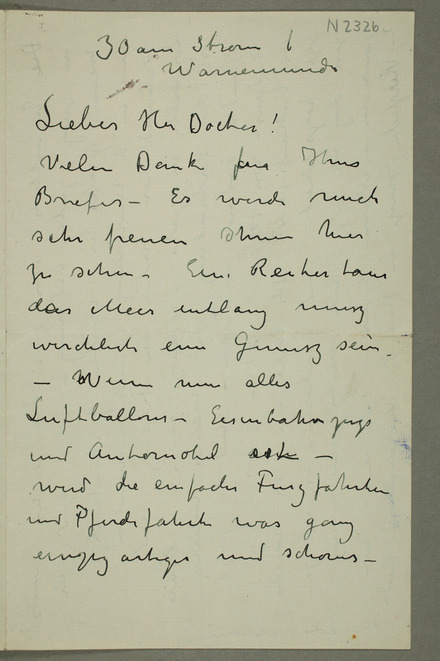 N2326
30 am Strom 6
Warnemünde
Lieber Herr Docter!
Vielen Dank für Ihres
Briefes – Es würde mich
sehr freuen Ihnen hier
zu sehen – Eine Reiter tour
das Meer entlang musz
wircklich ein Genusz sein.
– Wenn nun alles
Luftballons – Eisenbahnzugs
und Automobil –
wird die einfache
und Pferdefahrte was ganz
einzig artiges und schönes –